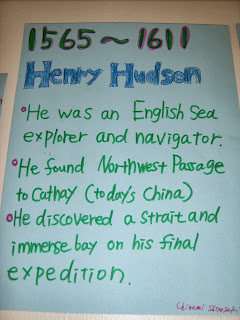 1565~1611
Henry Hudson
He was an English Sea
explorer and navigator.
He found Northwest Passage
to Cathay (today's China)
He discovered a strait and
immense bay on his final
expedition.